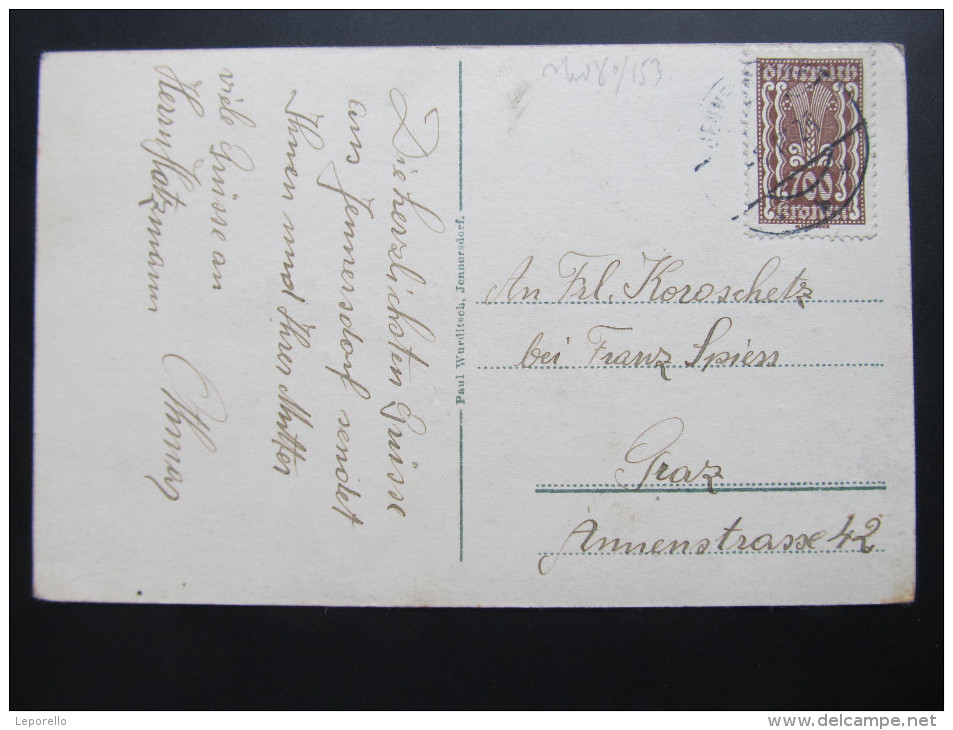 Die herzlichsten Grüsse
aus Jennersdorf sendet
Ihnen und Ihrer Mutter
Othmar
viele Grüsse an
Herrn Hatzmann
Paul Wurditsch, Jennersdorf.
153
JENNE
österreich
700
kronen
An Frl. Koroschetz
bei Franz Spiess
Graz
Annenstrasse 42
Leporello
www.delcampe.net